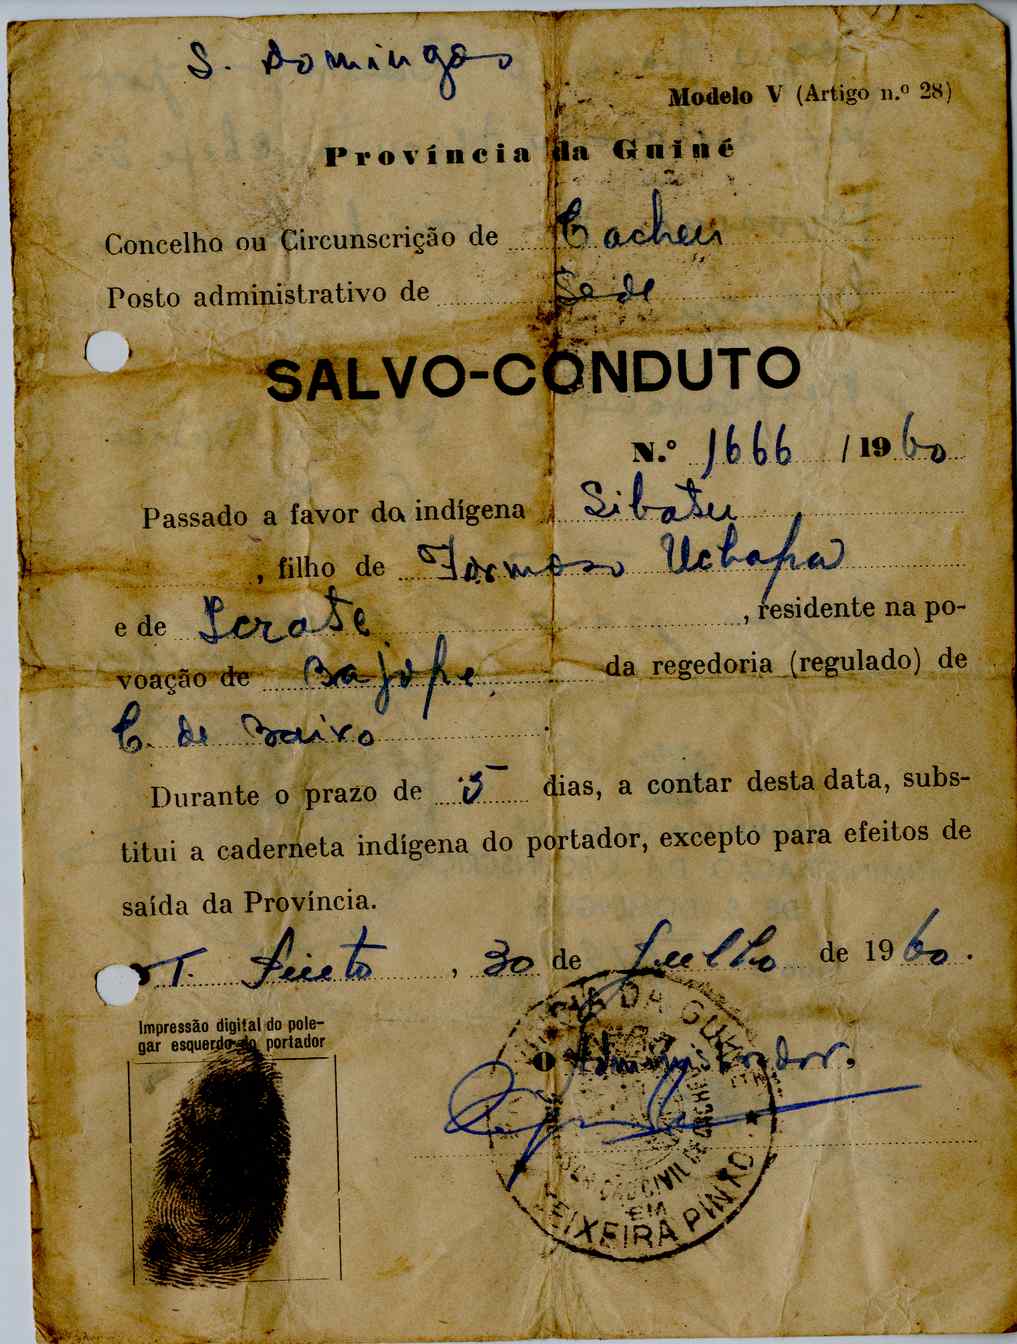 S. Domingos
Modelo V (Artigo n.º 28)
Província da Guiné
Concelho ou Circunscrição de Cacheu
Posto administrativo de Sede
SALVO-CONDUTO
N.º 1666 / 1960
Passado a favor da indígena Sibatu
, filho de Formoso Uchapa
e de , residente na po-
voação de Bajope da regedoria (regulado) de
C. de Baixo.
Durante o prazo de 15 dias, a contar desta data, subs-
titui a caderneta indígena do portador, excepto para efeitos de
saída da Província.
T. Pinto, 30 de Julho de 1960.
Impressão digital do pole-
gar esquerdo do portador
O Administrador.
DA GUINÉ
CIVIL DE
EM
TEIXEIRA PINTO